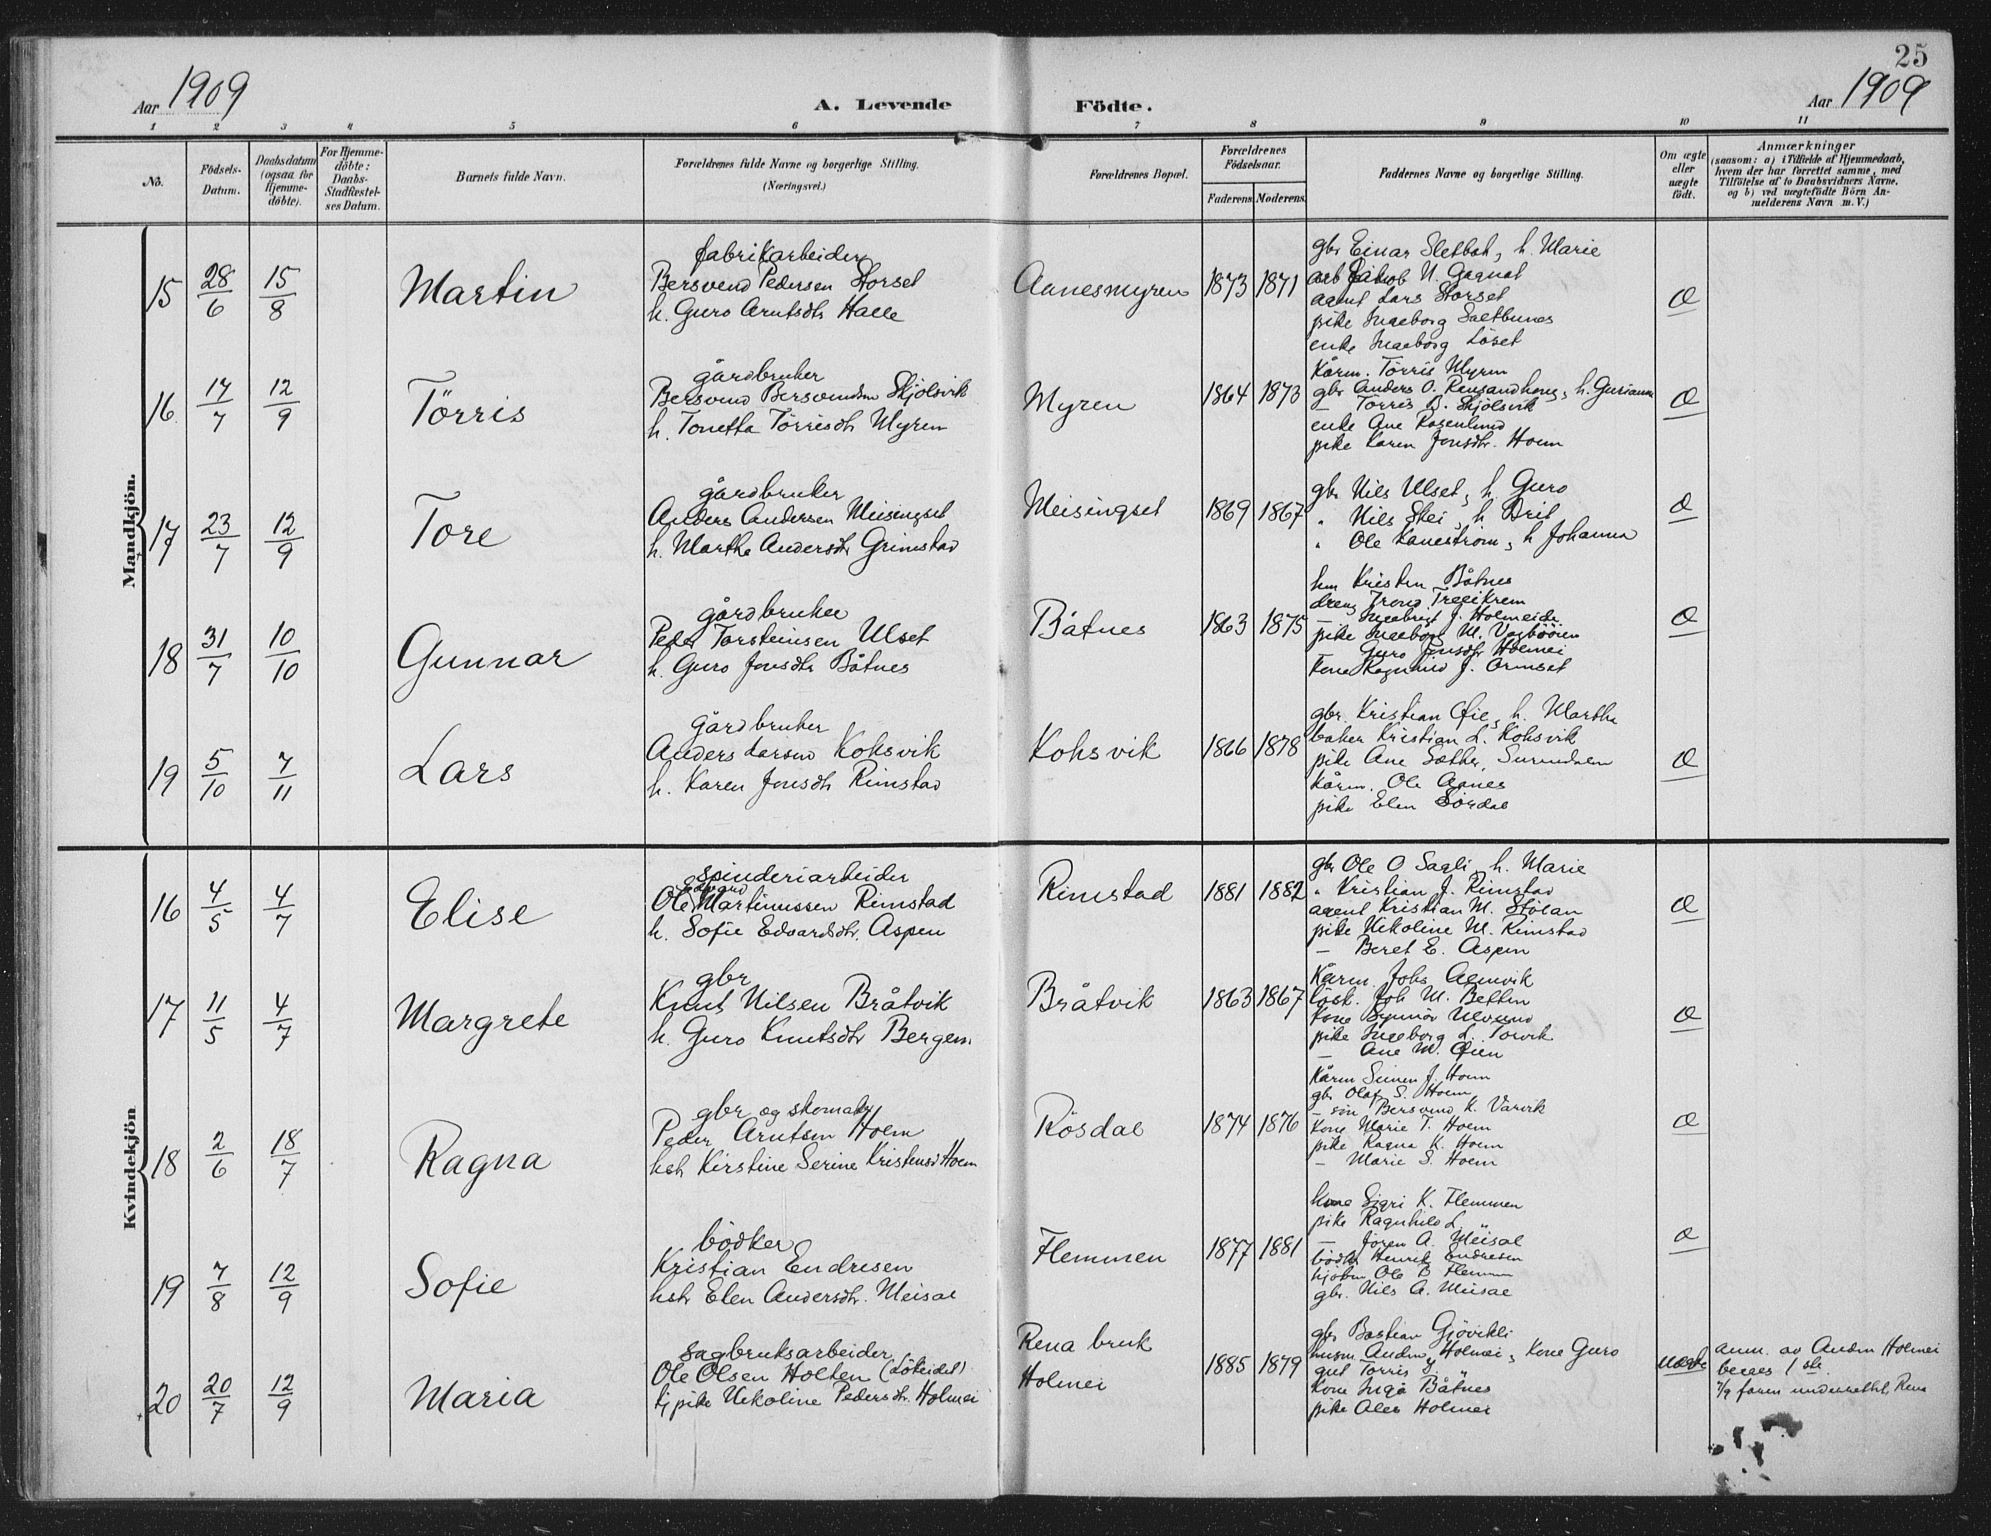 25
Aar 1909
A. Levende Födte.
Aar 1909
1 2 3 4 5 6 7 8 9 10 11
No.
Födsels-
Datum.
Daabsdatum
(ogsaa for
Hjemme-
döbte).
For Hjemme-
döbte:
Daabs-
Stadfæstel-
ses Datum.
Barnets fulde Navn.
Forældrenes fulde Navne og borgerlige Stilling.
(Næringsvei.)
Forældrenes Bopæl.
Forældrenes
Födselsaar.
Faderens. Moderens.
Faddernes Navne og borgerlige Stilling.
Om ægte
eller
uægte
födt.
Anmærkninger
(saasom: a) i Tilfælde af Hjemmedaab,
hvem der har forrettet samme, med
Tilföielse af to Daabsvidners Navne,
og b) ved uægtefödte Börn An-
melderens Navn m. V.)
Mandkjön.
15 28/6 15/8 Martin
fabrikarbeider
Bersvend Pedersen Storset
h. Guro Arntsdtr Halle
Aanesmyren 1873 1871
gbr Einar Sletbak, h. Marie
arb Jakob N. Gagnat
agent Lars Storset
pike Ingeborg Saltbunes
enke Ingeborg Löset
Æ
16 17/7 12/9 Törris
gårdbruker
Bersvend Bersvendsen Skjölsvik
h. Tonetta Törrisdtr Myren
Myren 1864 1873
Kårm. Törris Myren
gbr Anders O. Rensandhaug, h. Gurianna
– Törris B. Skjölsvik
enke Ane Rosenlund
pike Karen Jonsdtr. Hoem
Æ
17 23/7 12/9 Tore
gårdbruker
Anders Andersen Meisingset
h. Marthe Andersdtr Grimstad
Meisingset 1869 1867
gbr Nils Ulset, h. Guro
" Nils Stei, h. Brit
" Ole Kanestrøm, h Johanna
Æ
18 31/7 10/10 Gunnar
gårdbruker
Peder Torsteinsen Ulset
h. Guro Jonsdtr Båtnes
Båtnes 1863 1875
hm Kristen Båtnes
dreng Trond Treeikrem
– Ingebrigt J. Holmeide
pike Ingeborg M.
Guro Jonsdtr Holmei
Kone Ragnhild J. Ormset
Æ
19 5/10 7/11 Lars
gårdbruker
Anders Larsen Kohsvik
h. Karen Jonsdtr Rimstad
Kohsvik 1866 1878
gbr. Kristian Øie, h. Martha
baker Kristian L. Kohsvik
pike Ane Sæther, Surendalen
Kårm. Ole Aanes
pike Elen Sördal
Æ
Kvindekjön
16 4/5 4/7 Elise
spinderiarbeider
Ole Edvard Martinussen Rimstad
h. Sofie Edvardsdtr. Aspen
Rimstad 1881 1882
gbr Ole O Sagli h. Marie
" Kristian J. Rimstad
agent Kristian M. Stölan
pike Nikoline M. Rimstad
– Beret E. Aspen
Æ
17 11/5 4/7 Margrete
gbr
Knut Nilsen Bråtvik
h. Guro Knutsdtr Bergem
Bråtvik 1863 1867
Kårm Johs Aemvik
lösk. Joh M. Betten
Kone Synnöv Ulvund
pike Ingeborg L. Torvik
– Ane M. Øien
Æ
18 2/6 18/7 Ragna
gbr og skomaker
Peder Arntsen Hoem
hstr Kirstine Serine Kristensd Hoem
Rösdal 1874 1876
Kårm Simen J. Hoem
gbr Olaf S. Hoem
– sön Bersvend K. Varvik
Kone Marie T. Hoem
pike Ragna K. Hoem
– Marie S. Hoem
Æ
19 7/8 12/9 Sofie
bödker
Kristian Endresen
hstr Elen Andersdtr. Meisal
Flemmen 1877 1881
kone Sigri K. Flemmen
pike Ragnhild L.
– Jören A. Meisal
bödker Henrik Endresen
kjöbm Ole B Flemmen
gbr. Nils A. Meisal
Æ
20 20/7 12/9 Maria
sagbruksarbeider
Ole Olsen Holten (Lökeidet)
tj pike Nikoline Pedersdtr. Holmei
Rena bruk
Holmei
1885 1879
gbr Bastian Gjövikli
husm Anders Holmei, Kone Guro
gut Törris
Kone Inga Båtnes
pike Ales Holmei
uægte
anm. av Anders Holmei
begges 1ste
7/9 faren underrettet, Rena